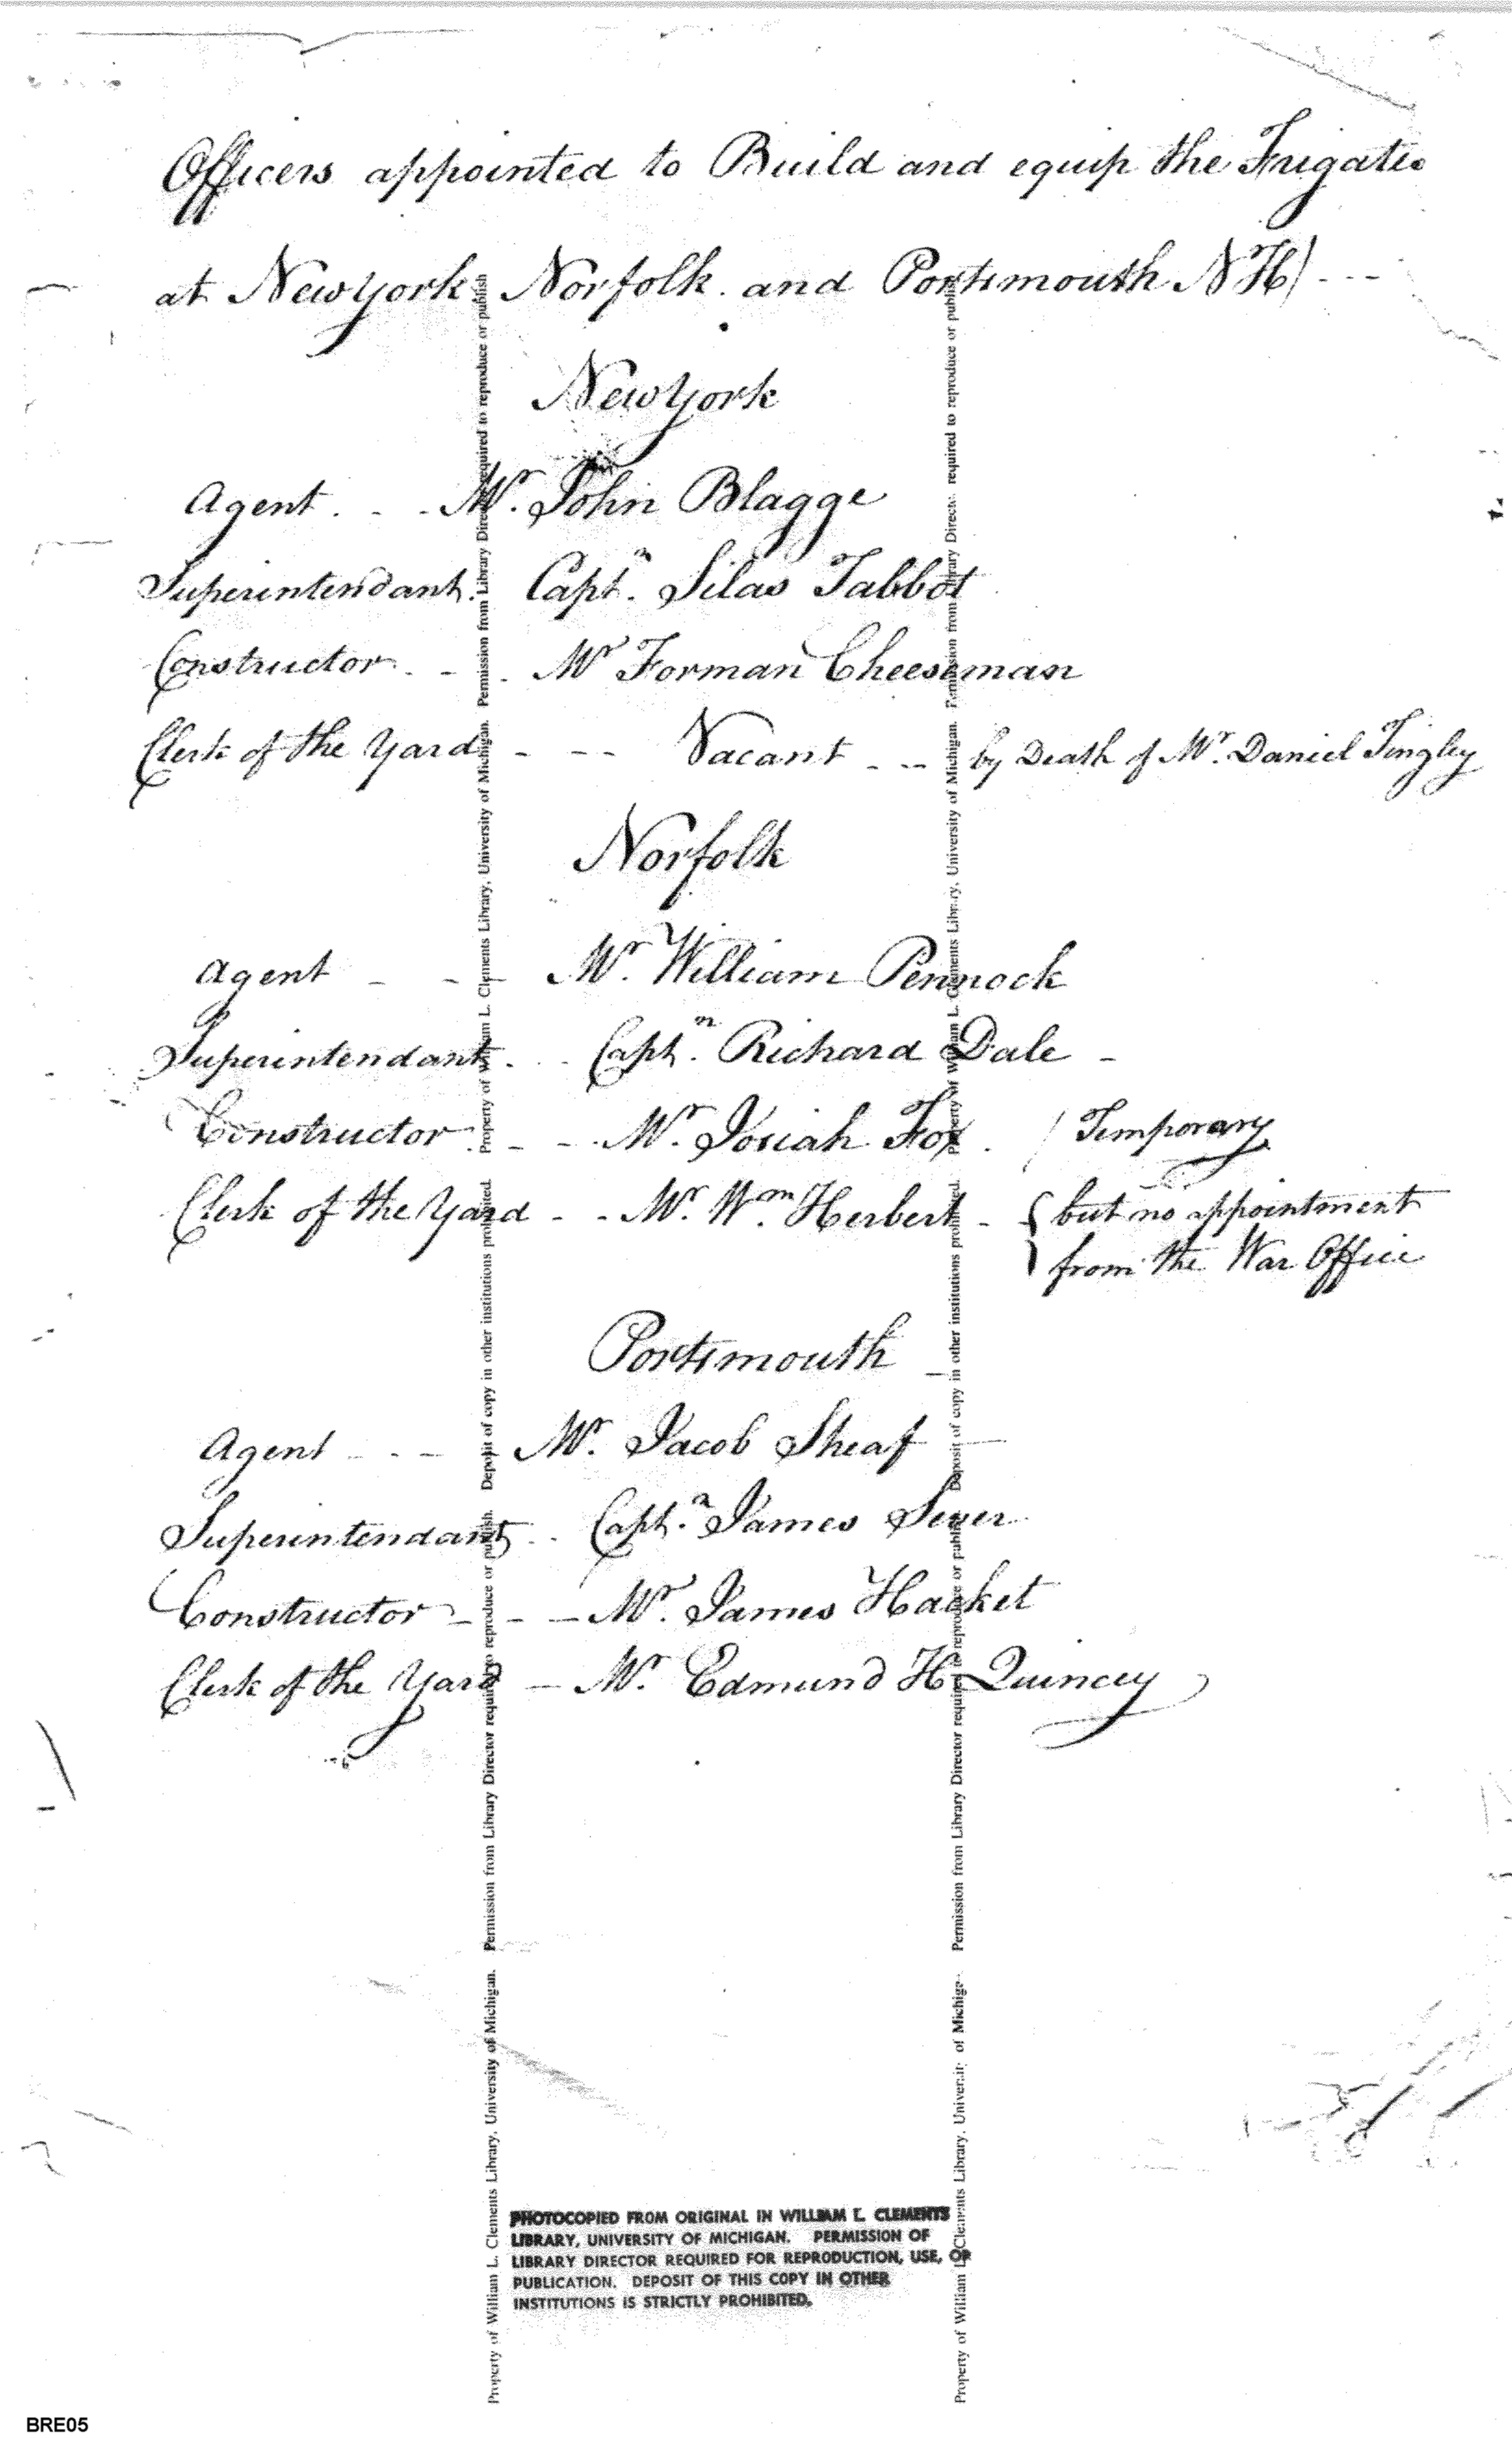 Officers appointed to Build and equip the Frigates
at New York Norfolk. and Portsmouth NH) - - -
New York
Agent. - - Mr. John Blagge
Superintendant. Captn. Silas Tabbot
Constructor. - . Mr Forman Cheeseman
Clerk of the Yard - - - Vacant - - - by Death of Mr. Daniel Tingley
Norfolk
Agent - - - Mr. William Pennock
Superintendant. . . Captn. Richard Dale -
Constructor. - - Mr. Josiah Fox . / Temporary
Clerk of the Yard - - Mr. Wm. Herbert - { but no appointment
from the War Office
Portsmouth -
Agent - - - - Mr. Jacob Sheaf
Superintendant. . Captn. James Sever
Constructor - - - Mr. James Hacket
Clerk of the Yard - Mr. Edmund H. Quincey
Property of William L. Clements Library, University of Michigan. Permission from Library Director required to reproduce or publish. Deposit of copy in other institutions prohibited.
Property of William L. Clements Library, University of Michigan. Permission from Library Director required to reproduce or publish
Property of William L. Clements Library, University of Michigan. Permission from Library Director required to reproduce or publish. Deposit of copy in other institutions prohibited.
Property of William L. Clements Library, University of Michigan. Permission from Library Director required to reproduce or publish
PHOTOCOPIED FROM ORIGINAL IN WILLIAM L. CLEMENTS
LIBRARY, UNIVERSITY OF MICHIGAN. PERMISSION OF
LIBRARY DIRECTOR REQUIRED FOR REPRODUCTION, USE, OR
PUBLICATION. DEPOSIT OF THIS COPY IN OTHER
INSTITUTIONS IS STRICTLY PROHIBITED.
BRE05